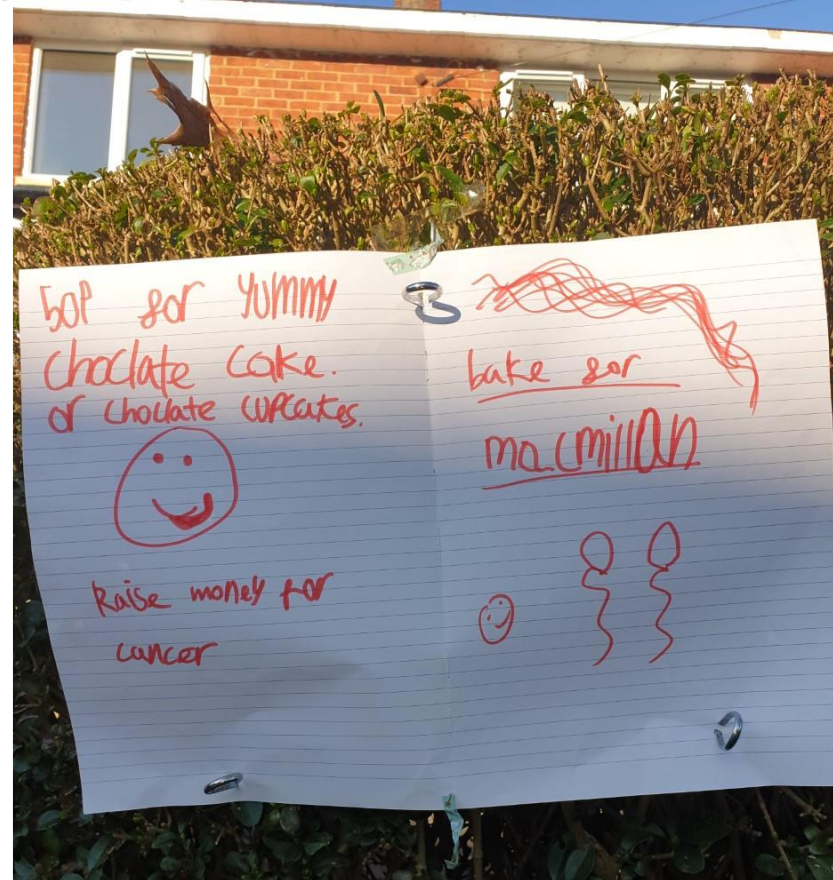 50P for YUMMY
choclate cake.
or choclate cupcakes.
Raise money for
cancer
bake for
macmillan